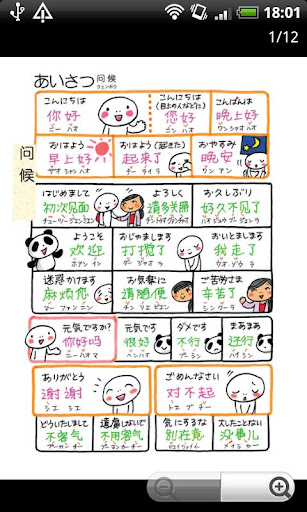 18:01
1/12
あいさつ 问候
ウェンホウ
问候
こんにちは
你好
ニー ハオ
こんにちは
(目上の人などに)
您好
ニン ハオ
こんばんは
晚上好
ワンシャオ ハオ
おはよう
早上好
ザオ シャン ハオ
おはよう(起きた)
起来了
チー ライ ラ
おやすみ
晚安
ワン アン
はじめまして
初次见面
よろしく
请多关照
お久しぶり
好久不见了
ようこそ
欢迎
ホアン イン
おじゃまします
打搅了
ダー ジャオ ラ
おいとまします
我走了
ウオ ゾウ ラ
迷惑かけます
麻烦您
マー ファン ニン
お気楽に
请随便
チン スイ ビエン
ご苦労さま
辛苦了
シン クー ラ
元気ですか?
你好吗
ニー ハオ マ
元気です
很好
ヘン ハオ
ダメです
不行
ブー シン
まあまあ
还行
ハイ シン
ありがとう
谢谢
シエ シエ
ごめんなさい
对不起
ドゥイ ブ チー
どういたしまして
不客气
ブー カー チ
遠慮しないで
不用客气
気にするな
别在意
たいしたことない
没事儿